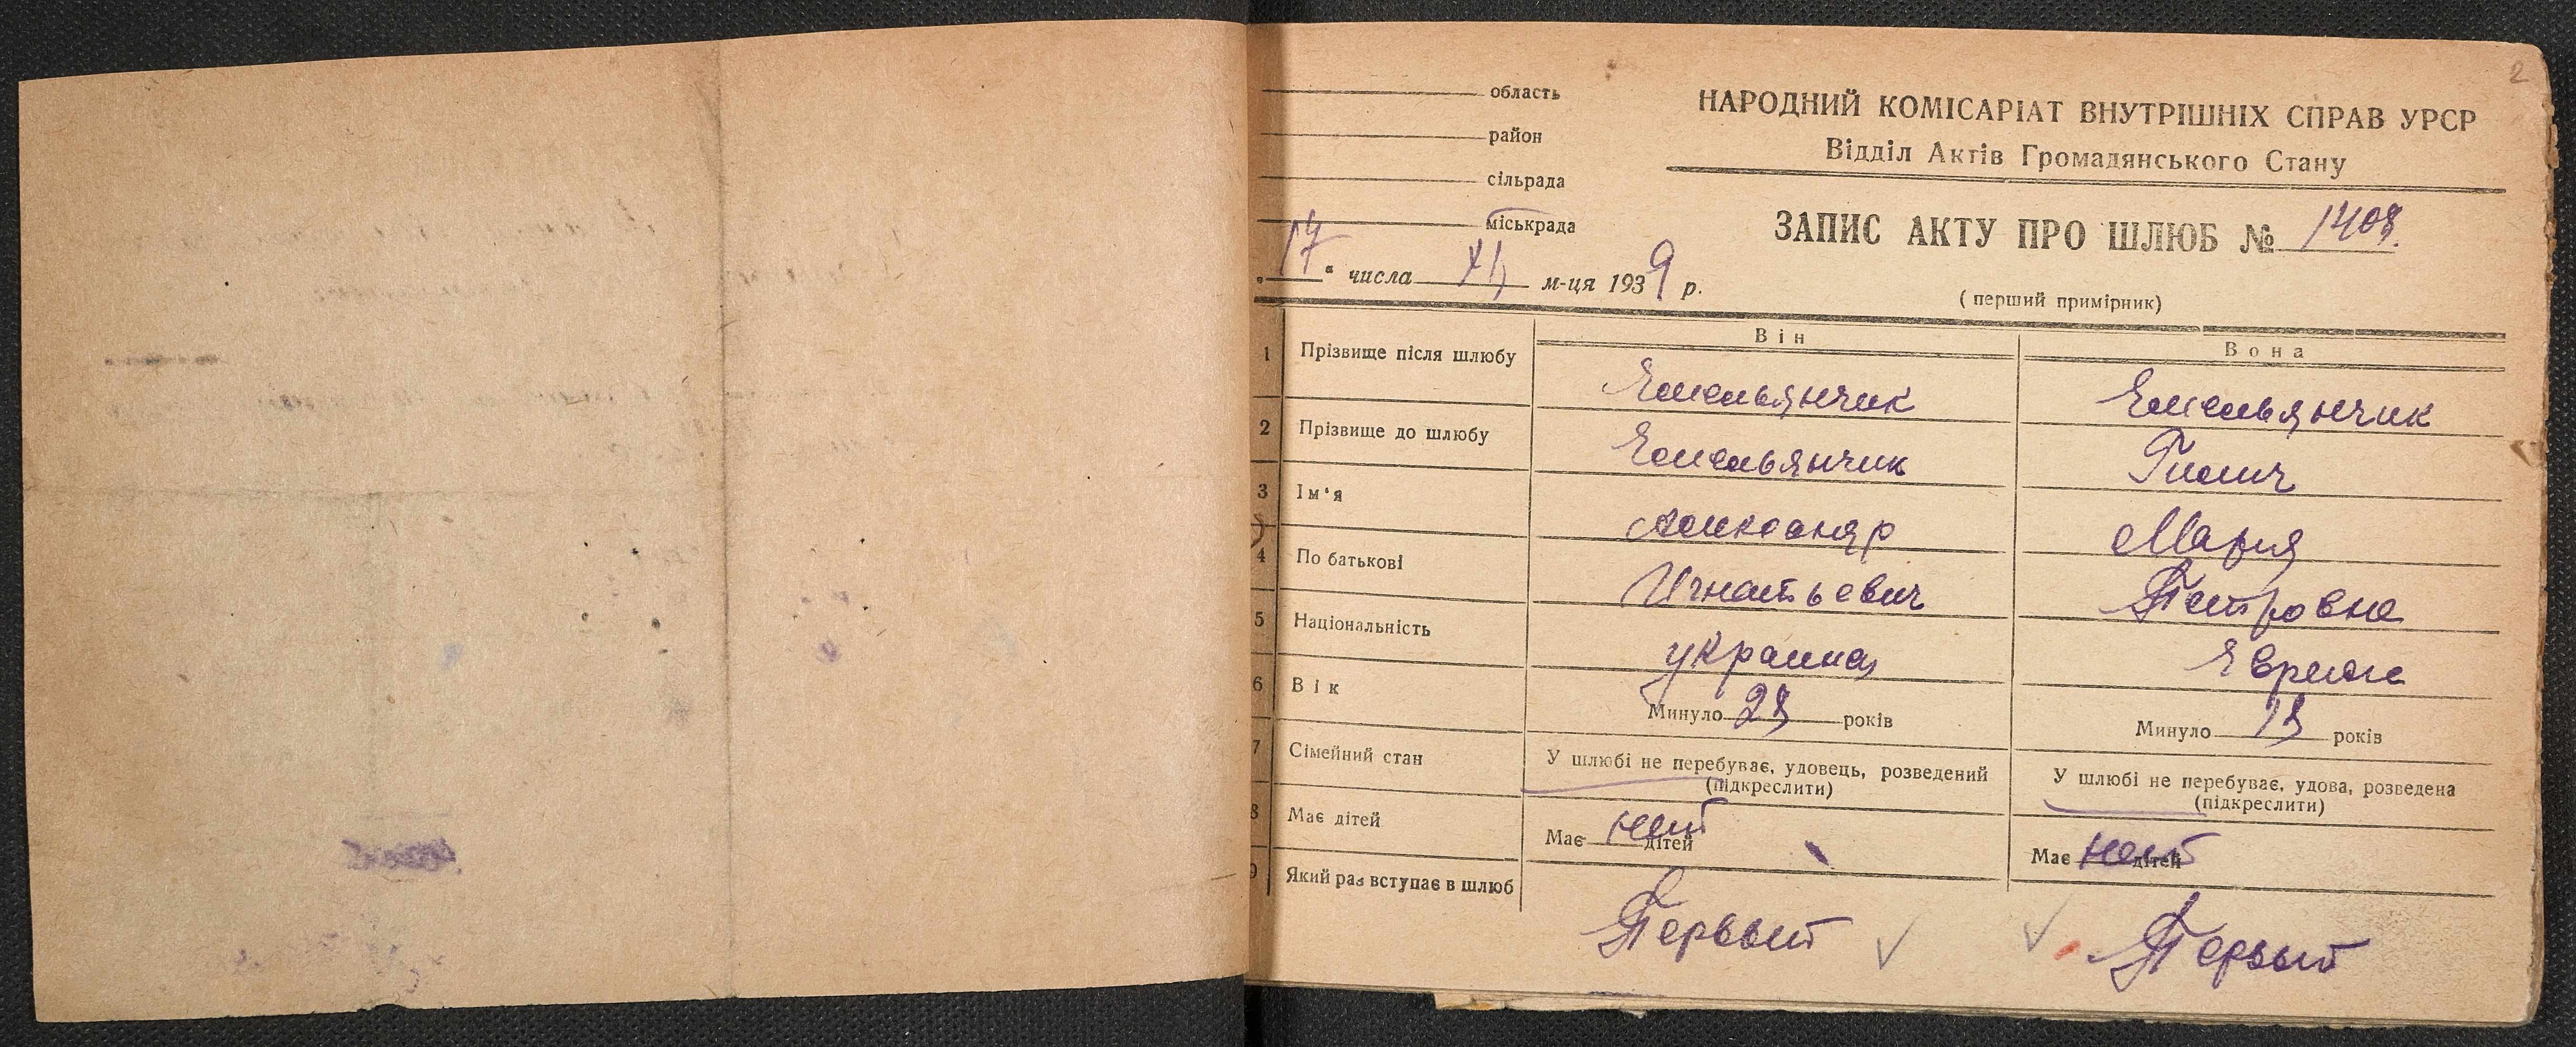 2
область
район
сільрада
міськрада
НАРОДНИЙ КОМІСАРІАТ ВНУТРІШНІХ СПРАВ УРСР
Відділ Актів Громадянського Стану
ЗАПИС АКТУ ПРО ШЛЮБ № 1408.
„17“ числа XII м-ця 1939 р.
(перший примірник)
Він Вона
1 Прізвище після шлюбу Емельянчик Емельянчик
2 Прізвище до шлюбу Емельянчик
3 Ім'я Александр Мария
4 По батькові Игнатьевич Петровна
5 Національність украинец Еврейк
6 Вік Минуло 28 років Минуло років
7 Сімейний стан У шлюбі не перебуває, удовець, розведений У шлюбі не перебуває, удова, розведена
(підкреслити) (підкреслити)
8 Має дітей Має нет дітей Має нет дітей
9 Який раз вступає в шлюб Первый Первый